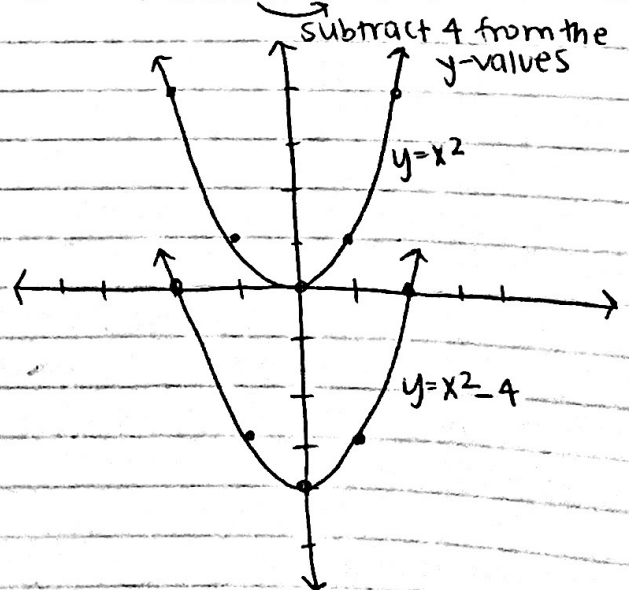 subtract 4 from the
y-values
y=x²
y=x²-4